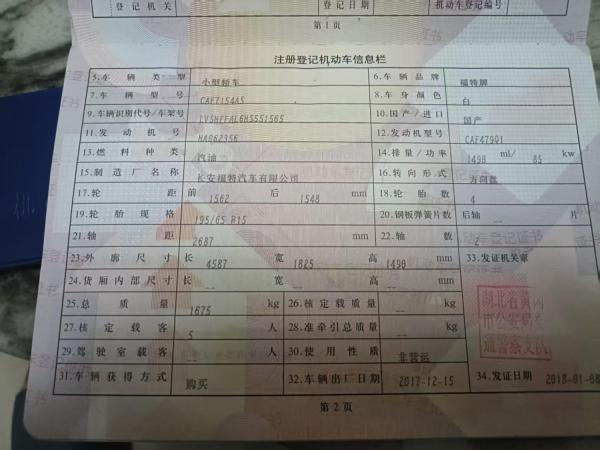 登记机关 登记日期 机动车登记编号
第1页
注册登记机动车信息栏
5.车辆类型 小型轿车 6.车辆品牌 福特牌
7.车辆型号 CAF7154A5 8.车身颜色 白
9.车辆识别代号/车架号 LVSHFFAL6HS551565 10.国产/进口 国产
11.发动机号 HA062356 12.发动机型号 CAF479Q1
13.燃料种类 汽油 14.排量/功率 1498 ml/ 85 kw
15.制造厂名称 长安福特汽车有限公司 16.转向形式 方向盘
17.轮距 前 1562 后 1548 mm 18.轮胎数 4
19.轮胎规格 195/65 R15 20.钢板弹簧片数 后轴 -- 片
21.轴距 2687 mm 22.轴数 2
23.外廓尺寸 长 4587 宽 1825 高 1490 mm 33.发证机关章
24.货厢内部尺寸 长 -- 宽 -- 高 -- mm
25.总质量 1675 kg 26.核定载质量 -- kg
27.核定载客 5 人 28.准牵引总质量 -- kg
29.驾驶室载客 -- 人 30.使用性质 非营运
31.车辆获得方式 购买 32.车辆出厂日期 2017-12-15 34.发证日期 2018-01-08
湖北省黄
市公安局
通警察支队
第2页